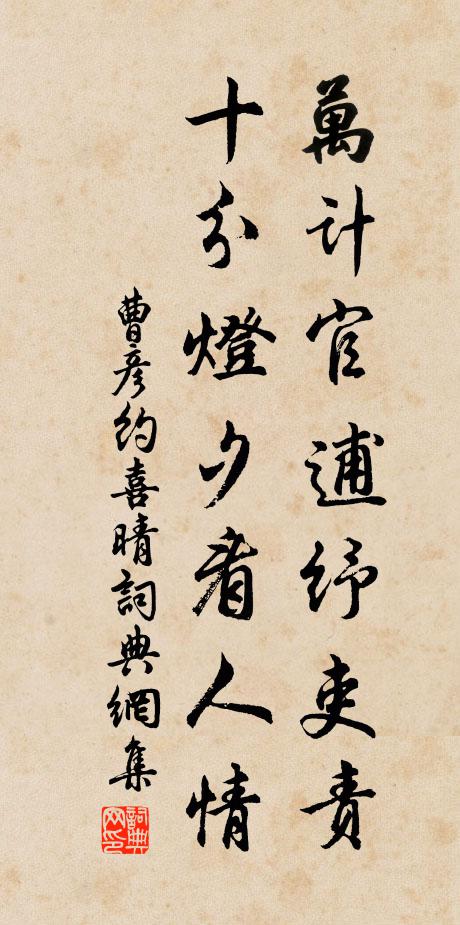 萬計官逋紓吏責
十分燈夕看人情
曹彥約喜晴詞典網集
詞典網印